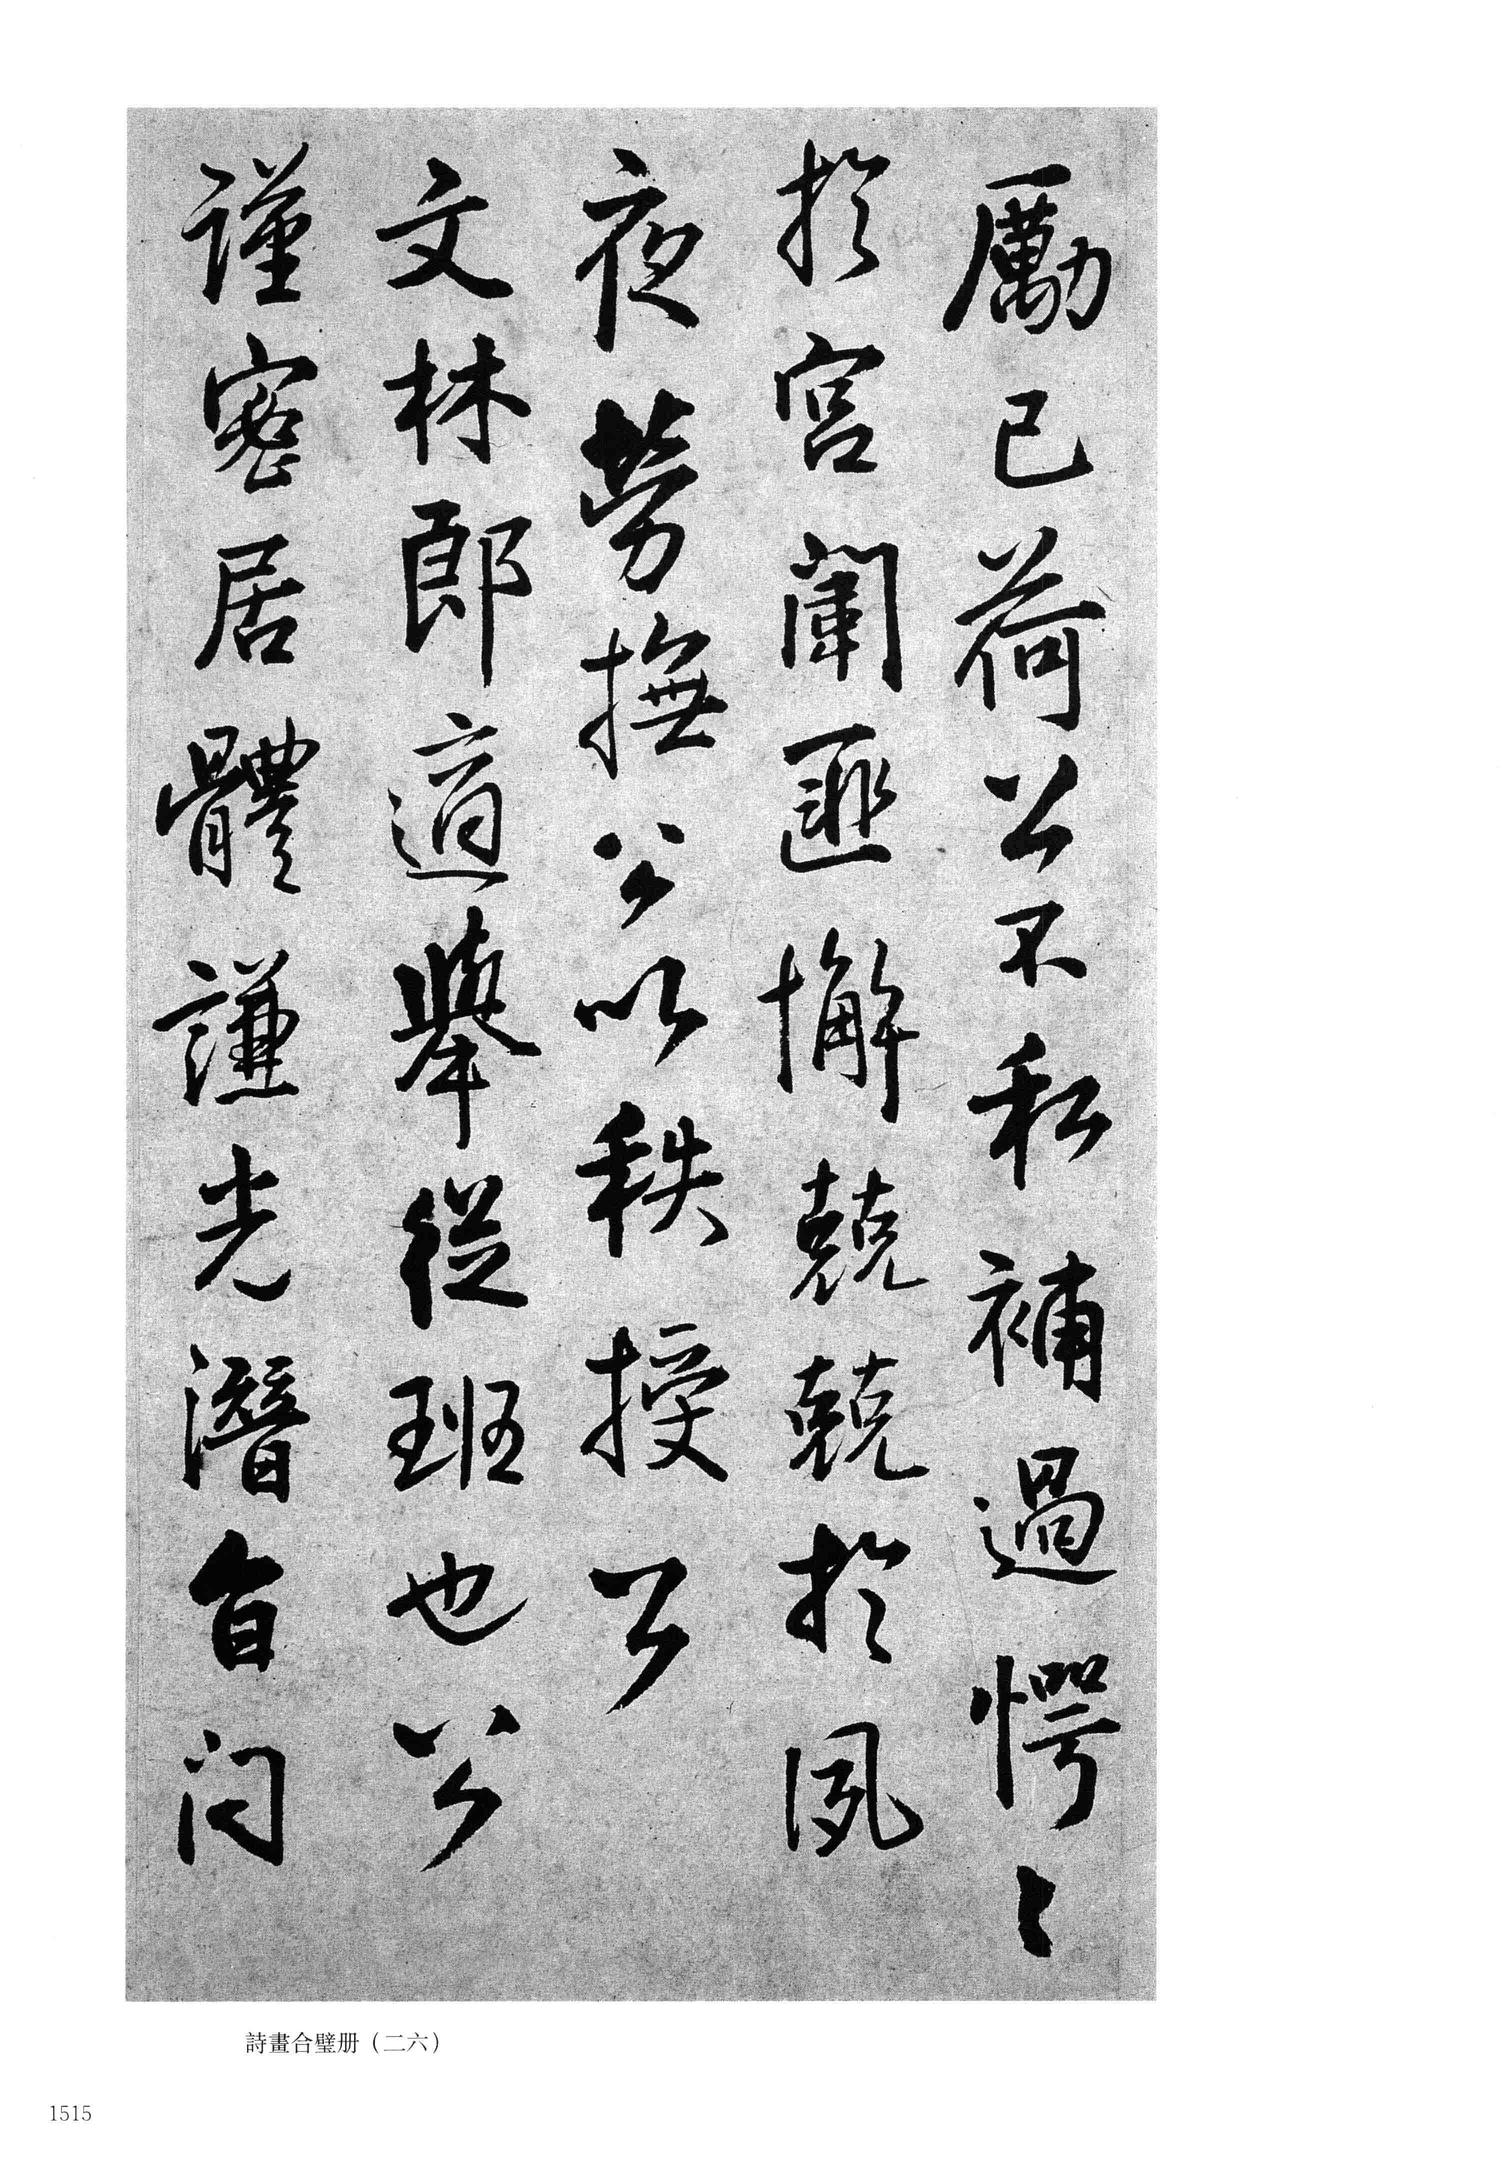 勵己荷公不私補過愕〻
於宮闈匪懈兢兢於夙
夜勞撫公以秩授公
文林郎適舉從班也公
謹密居體謙光潛自闩
詩畫合璧册（二六）
1515